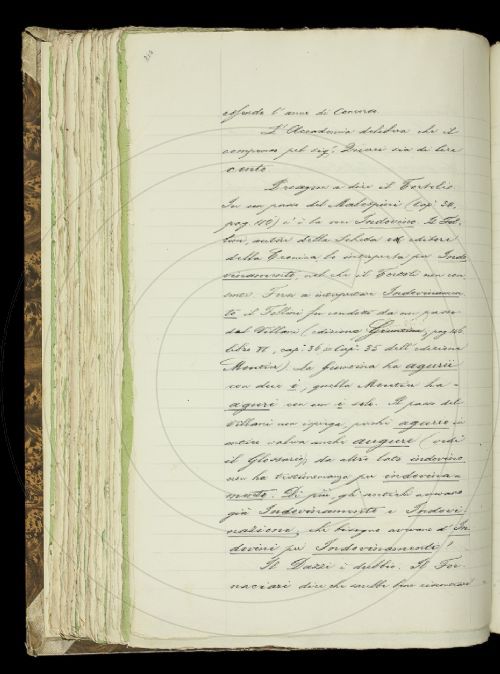 essendo l'anno di Concorso.
L'Accademia delibera che il
compenso pel sig. sia di lire
cento.
Prosegue a dire il Tortoli:
In un passo del Malespini (Cap. 36,
pag. ) vi è la voce Indovino. Il Fol-
lini, autore della Scheda ed editore
della Cronica lo interpreta per Indo-
vinamento, nel che il Tortoli non con
sente. Trova a interpretare Indovinamen-
to il Follini fu condotto da un passo
del Villani (edizione Giuntina, pag.
libro VI, cap. 36 e cap. 35 dell'edizione
Moutier). La Giuntina ha agurii
con due i, quella Moutier ha
aguri con un i solo. Il passo del
Villani non ispiega perchè agurio in
antico valeva anche augure (vedi
il Glossario), da altro lato indovino
non ha testimonianza per indovina-
mento. Di più, gli antichi avevano
già Indovinamento e Indovi-
nazione, che bisogno avevano d'In-
dovini per Indovinamenti?
Il Dazzi è dubbio. Il For-
naciari dice che sarebbe bene